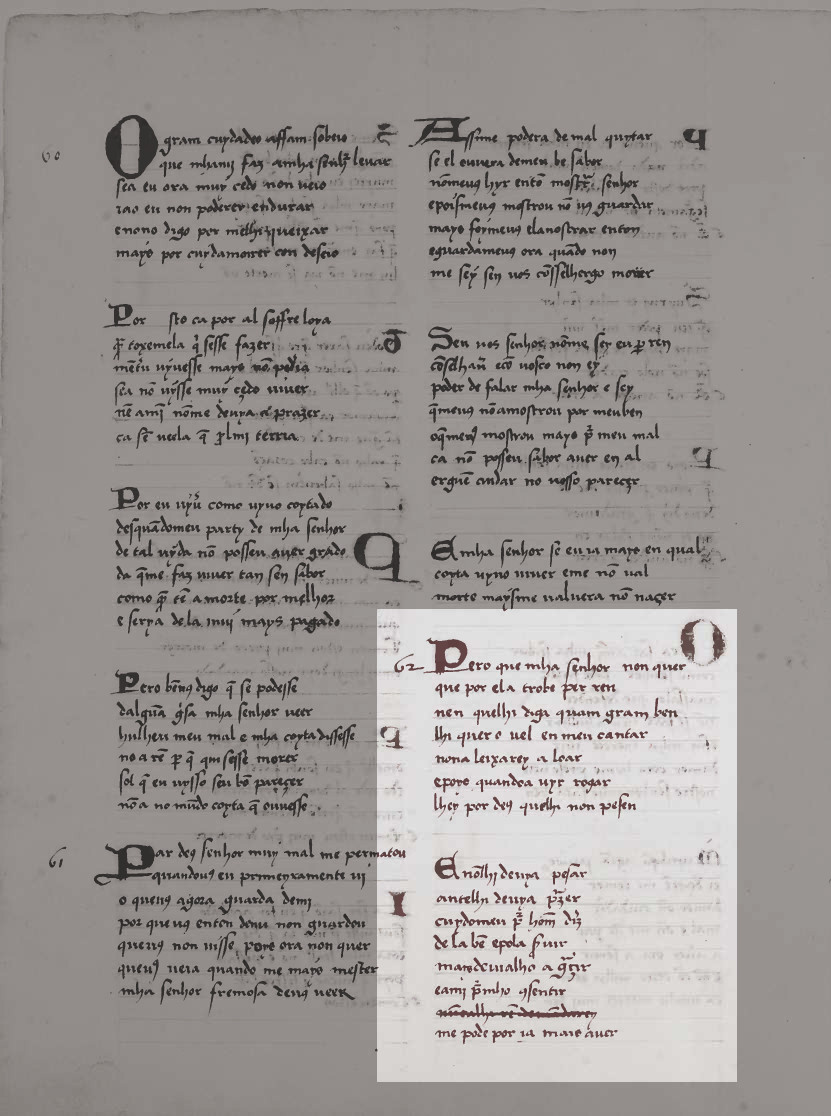 60
O gram cuydado affam sobeio
que mhamj faz amha senhor levar
sea eu ora muy cedo non veio
iao eu non poderey endurar
enono digo por melhi queixar
mays por cuydamorrer con deseio
Por sto ca por al soffre loya
mētu vyvesse mays nō podia
sea nō vysse muy cedo viver
nē amī nōme devya ē prazer
ca sē veela q̄ plmi terria
Por eu vyū como vyvo coytado
desquādomeu party de mha senhor
de tal vyda nō posseu aver grado
da q̄me faz viver tan sen sabor
como q̄ tē a morte por melhor
e serya dela muj mays pagado
Pero bēvus digo q̄ se podesse
dalgūa gsa mha senhor veer
hulheu meu mal e mha coyta dissesse
no a rē p q̄ qm sesse morer
sol q̄ en vysso seu bō pareçer
nō a no mūdo coyta q̄ ouvesse
61
Par deus senhor muy mal me per matou
quandovus eu primeyramente vi
o quevus agora guarda demi
por quevus enton deus non guardou
quevus non visse, pois ora non quer
quevus veia quando me mays mester
mha senhor fremosa devus veer
Assime podera de mal quytar
se el ouvera demeu bē sabor
nōmevus hyr entō mostrar senhor
epoismevus mostrou nō vus guardar
mays foymevus elamostrar enton
eguardamevus ora quādo non
me sey sen vos cōsselhergo morrer
Sen vos senhor, nōme sey eu per ren
cōselhar ecō vosco non ey
poder de falar mha senhor e sey
q̄mevus nōamostrou por meu ben
oq̄mevus mostrou mays p̄ meu mal
ca nō posseu sabor aver en al
erguē cuidar no vosso pareçer
E mha senhor se eu ia mays en qual
coyta vyvo viver eme nō val
morte maysme valvera nō naçer
62
Pero que mha senhor non quer
que por ela trobe per ren
nen quelhi diga quam gram ben
lhi quero vel en meu cantar
nona leixarey a loar
epoys quandoa vyr rogar
lhey por deus quelhi non pesen
E nōlhi devya pesar
antelhi devya p̄zer
cuydomeu p̄ hom diz
de la bē epola s̄vir
mandevialho a gracir
eami p̄mho 9sentir
me pode por ia mais aver